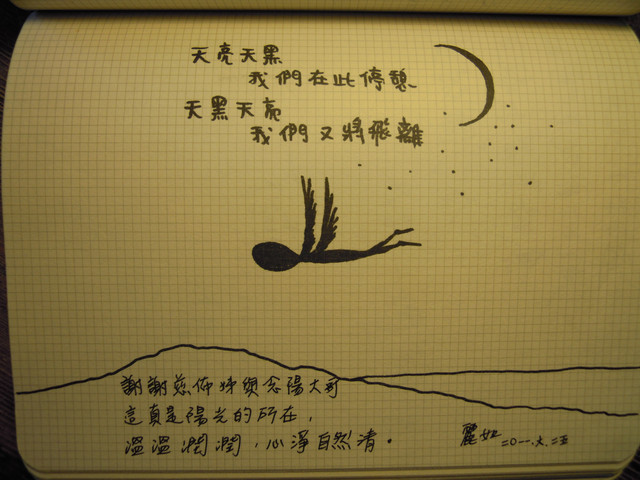 天亮天黑
我們在此停憩
天黑天亮
我們又將飛離
謝謝慈佈姊與念陽大哥
這真是陽光的所在，
溫溫潤潤，心淨自然清。
麗如 二〇一一.六.二五